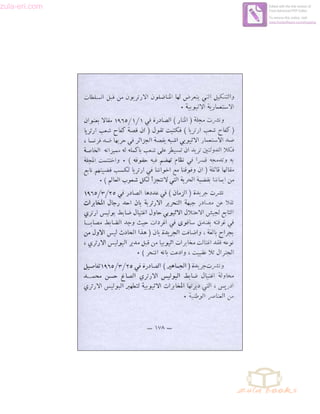 zula-eri.com
والتنكيل التي يتعرض لها المناضلون الارتريون من قبل السلطات
الاستعمارية الاثيوبية .
ونشرت مجلة ( المنار ) الصادرة في ١/١/ ١٩٦٥ مقالا بعنوان
( كفاح شعب ارتريا ) فكتبت تقول ( ان قصة كفاح شعب ارتريا
ضد الاستعمار الاثيوبي اشبه بقصة الجزائر في حربها ضد فرنسا ،
فكلا الدولتين تريد ان تسيطر على شعب بأكمله له مميزاته الخاصة
به وتدمجه قسرا في نظام تهضم فيه حقوقه ) • واختتمت المجلة
مقالها قائلة ( ان وقوفنا مع اخواننا في ارتريا لكسب قضيتهم نابع
من ايماننا بقضية الحرية التي لا تتجزأ لكل شعوب العالم ) •
نشرت جريدة ( الزمان ) في عددها الصادر في ٢٥/٣/ ١٩٦٥
نقلا عن مصادر جبهة التحرير الارترية بان احد رجال المخابرات
التابع لجيش الاحتلال الاثيوبي حاول اغتيال ضابط بوليس ارتري
في غرفته بفندق ساڤوى في اغردات حيث وجد الضابط مصابا
بجراح بالغة ، واضافت الجريدة بان ( هذا الحادث ليس الاول من
نوعه فقد اغتالت مخابرات اثيوبيا من قبل مدير البوليس الارتري ،
الجنرال تلا عقبيت ، وادعت بانه انتحر ) •
ونشرت جريدة ( الجماهير ) الصادرة في ٢٥/٣/ ١٩٦٥ تفاصيل
محاولة اغتيال ضابط البوليس الارتري الصاغ حسن محمد
ادريس ، التي دبرتها المخابرات الاثيوبية لتطهير البوليس الارتري
من العناصر الوطنية •
— ١٧٨ —
zula books